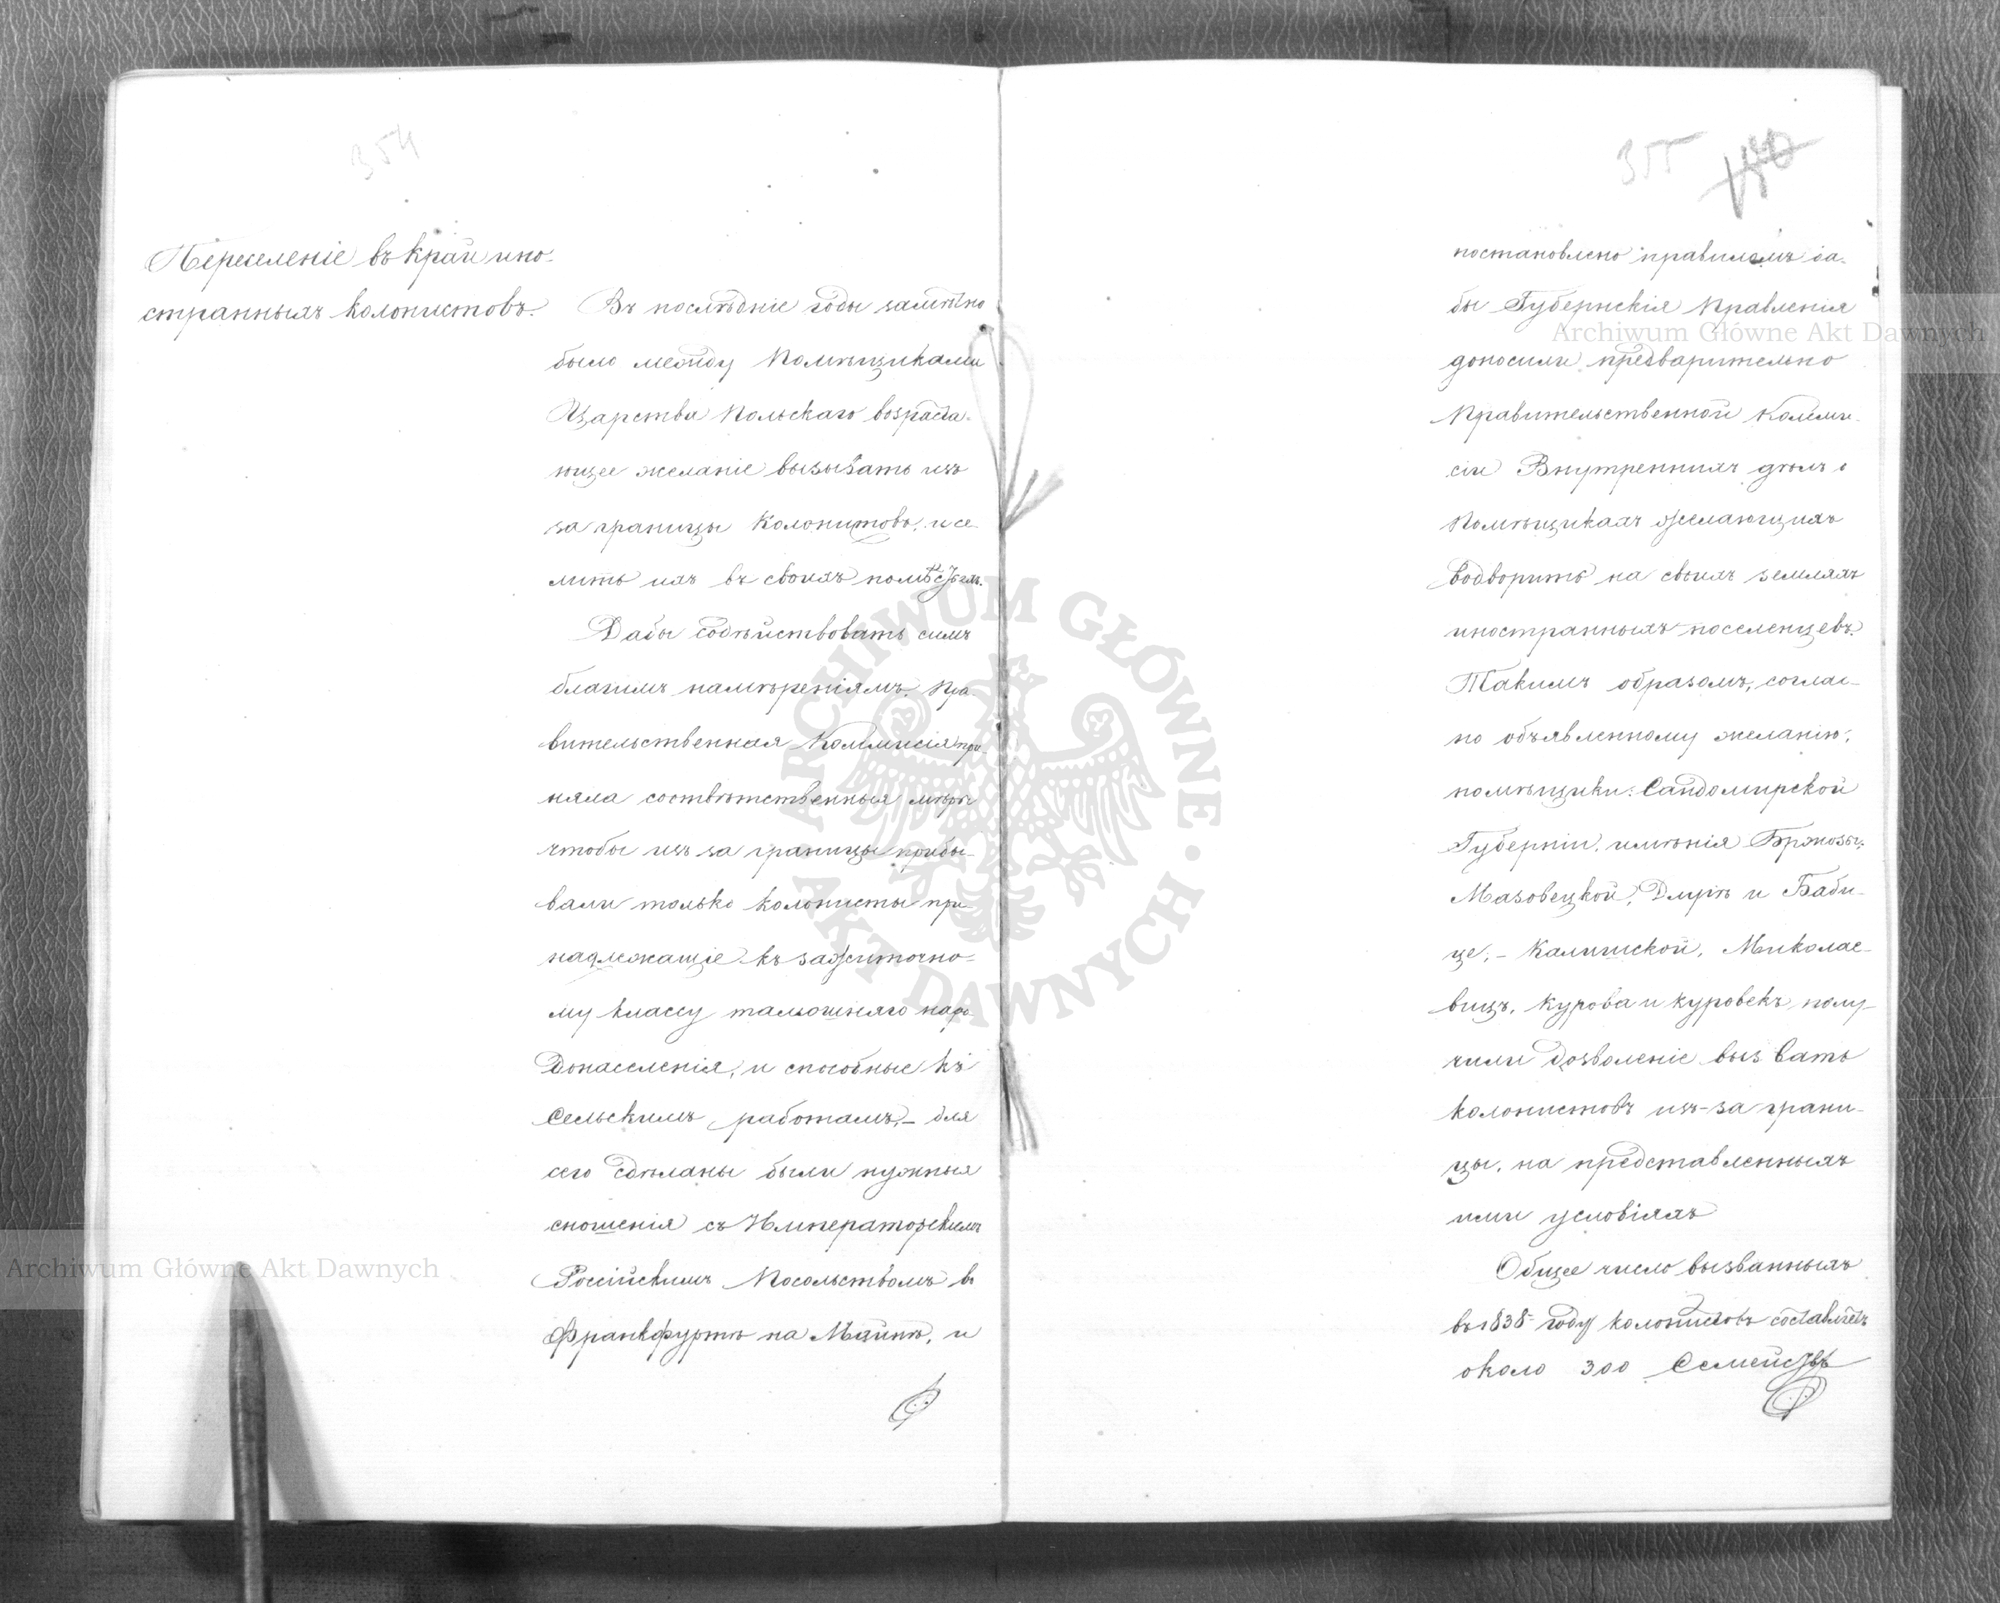 354
Переселеніе въ край ино-
странныхъ колонистовъ.
Въ послѣдніе годы замѣтно
было между Помѣщиками
Царства Польскаго возраста-
ющее желаніе вызывать изъ
за границы Колонистовъ, и се-
лить ихъ въ своихъ помѣстьяхъ.
Дабы содѣйствовать симъ
благимъ намѣреніямъ, Пра-
вительственная Коммисія при-
няла соотвѣтственныя мѣры
чтобы изъ за границы прибы-
вали только колонисты при-
надлежащіе къ зажиточно-
му классу тамошняго наро-
донаселенія, и способные къ
сельскимъ работамъ, - для
сего сдѣланы были нужныя
сношенія съ Императорскимъ
Россійскимъ Посольствомъ въ
Франкфуртѣ на Майнѣ, и
355
постановлено правиломъ да-
бы Губернскія Правленія
доносили предварительно
Правительственной Коммис-
сіи Внутреннихъ дѣлъ о
Помѣщикахъ желающихъ
водворить на своихъ земляхъ
иностранныхъ поселенцевъ.
Такимъ образомъ, соглас-
но объявленному желанію,
помѣщики: Сандомирской
Губерніи, имѣнія Бржозы,
Мазовецкой, и Баби-
це, - Калишской, Миколае-
вицъ, Курова и Куровекъ, полу-
чили дозволеніе вызвать
колонистовъ изъ-за грани-
цы, на представленныхъ
ими условіяхъ
Общее число вызванныхъ
въ 1838 году колонистовъ составляетъ
около 300 Семействъ
Archiwum Główne Akt Dawnych
Archiwum Główne Akt Dawnych
ARCHIWUM GŁÓWNE · AKT DAWNYCH ·